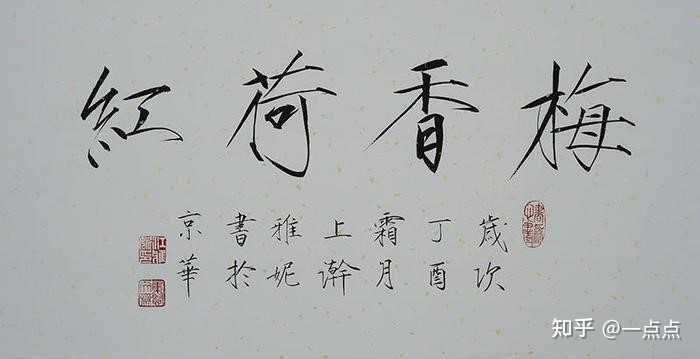 梅香荷紅
歲次
丁酉
霜月
上澣
雅妮
書於
京華
知乎 @一点点